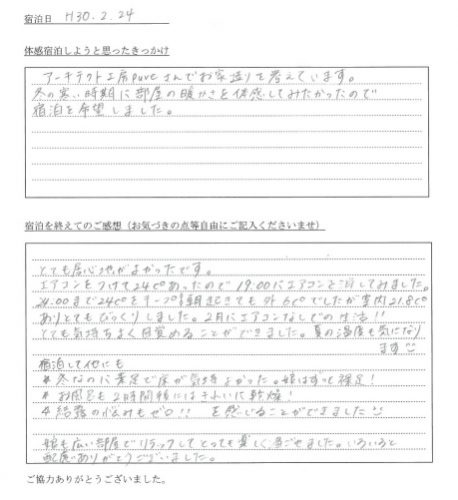 宿泊日 H30.2.24
体感宿泊しようと思ったきっかけ
アーキテクト工房pureさんでお家造りを考えています。
冬の寒い時期に部屋の暖かさを体感してみたかったので
宿泊を希望しました。
宿泊を終えてのご感想(お気づきの点等自由にご記入くださいませ)
とても居心地がよかったです。
エアコンをつけて24℃あったので19:00にエアコンを消してみました。
24:00まで24℃をキープ 朝起きても外6℃でしたが室内21.8℃
ありとてもびっくりしました。2月にエアコンなしでの生活!!
とても気持ちよく目覚めることができました。夏の温度も気になり
ます
宿泊して他にも
* 冬なのに素足で床が気持ちよかった。娘はずっと裸足!
* お風呂も2時間後にはきれいに乾燥!
* 結露の悩みもゼロ!! を感じることができました
娘も広い部屋でリラックスしてとっても楽しく過ごせました。いろいろと
配慮ありがとうございました。
ご協力ありがとうございました。